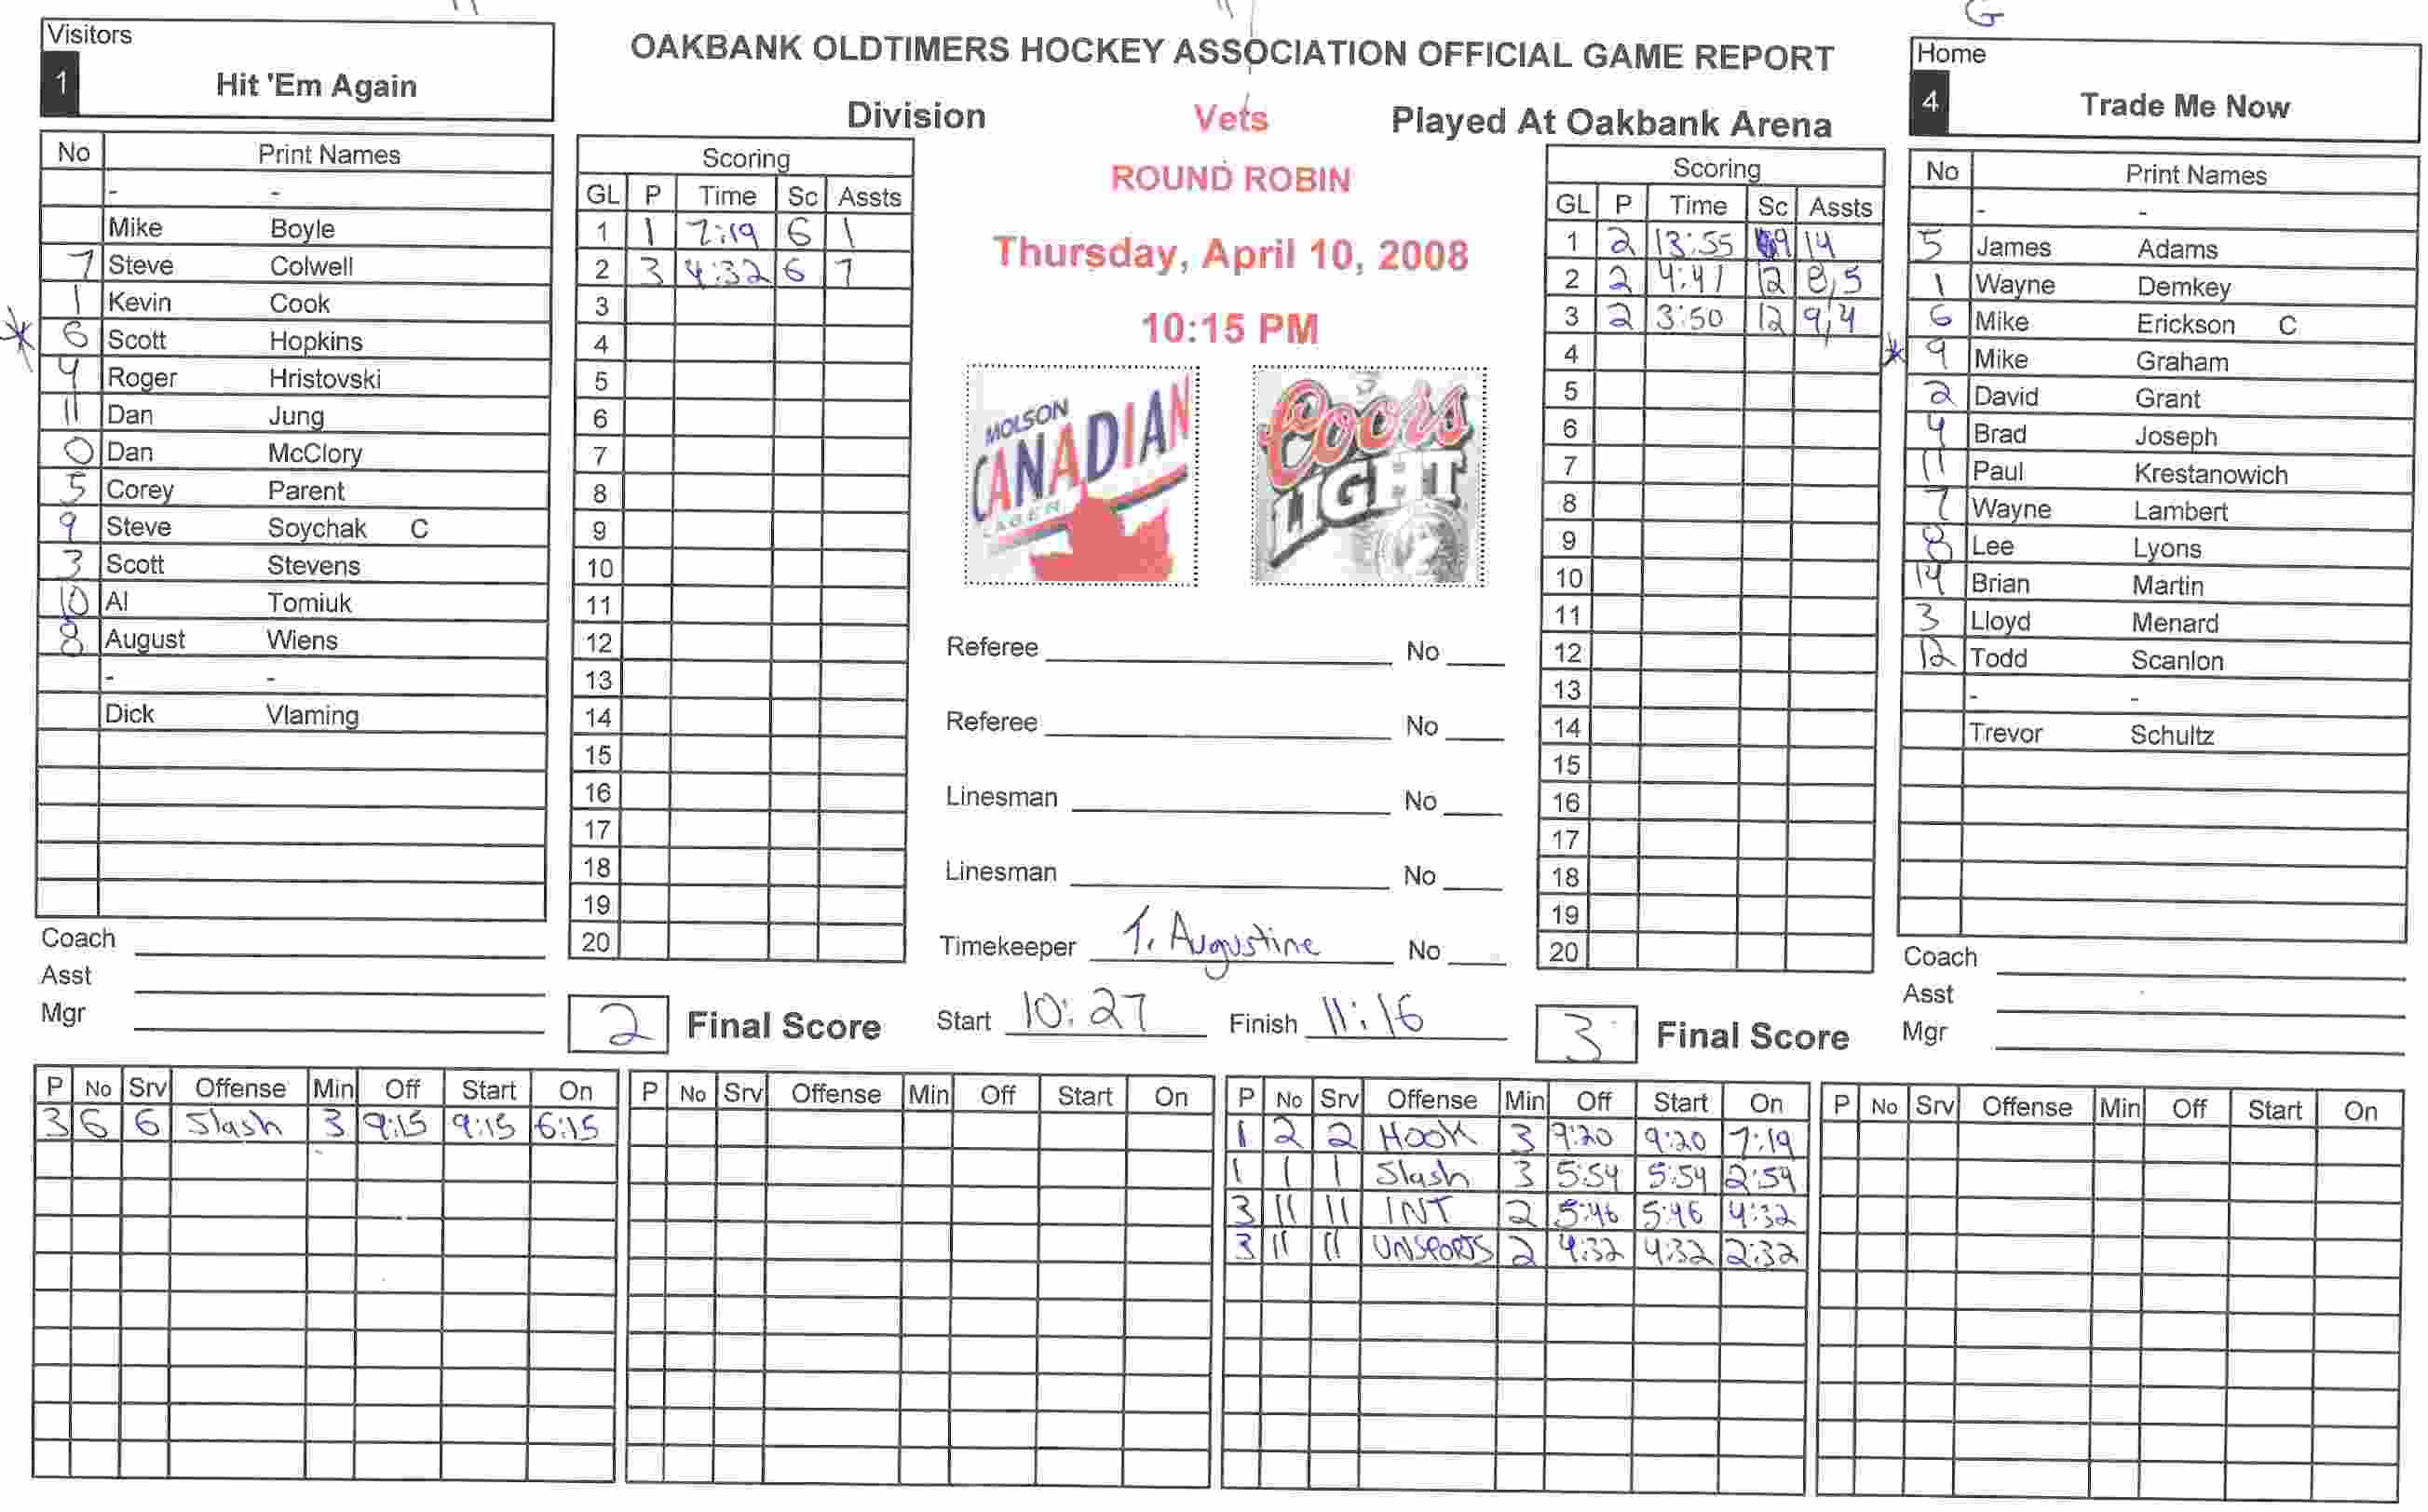 OAKBANK OLDTIMERS HOCKEY ASSOCIATION OFFICIAL GAME REPORT
Visitors
1 Hit 'Em Again
Home
4 Trade Me Now
Division Vets Played At Oakbank Arena
ROUND ROBIN
Thursday, April 10, 2008
10:15 PM
MOLSON
CANADIAN
LAGER
Coors
LIGHT
No Print Names
- -
Mike Boyle
7 Steve Colwell
1 Kevin Cook
* 6 Scott Hopkins
4 Roger Hristovski
11 Dan Jung
0 Dan McClory
5 Corey Parent
9 Steve Soychak C
3 Scott Stevens
10 Al Tomiuk
8 August Wiens
- -
Dick Vlaming
Coach
Asst
Mgr
Scoring
GL P Time Sc Assts
1 1 7:19 6 1
2 3 4:32 6 7
3
4
5
6
7
8
9
10
11
12
13
14
15
16
17
18
19
20
2 Final Score
Referee No
Referee No
Linesman No
Linesman No
Timekeeper T. Augustine No
Start 10:27 Finish 11:16
Scoring
GL P Time Sc Assts
1 2 13:55 9 14
2 2 4:41 12 8,5
3 2 3:50 12 9,4
4
5
6
7
8
9
10
11
12
13
14
15
16
17
18
19
20
3 Final Score
No Print Names
- -
5 James Adams
1 Wayne Demkey
6 Mike Erickson C
* 9 Mike Graham
2 David Grant
4 Brad Joseph
11 Paul Krestanowich
7 Wayne Lambert
8 Lee Lyons
14 Brian Martin
3 Lloyd Menard
12 Todd Scanlon
- -
Trevor Schultz
Coach
Asst
Mgr
P No Srv Offense Min Off Start On
3 6 6 Slash 3 9:15 9:15 6:15
P No Srv Offense Min Off Start On
P No Srv Offense Min Off Start On
1 2 2 HOOK 3 9:20 9:20 7:19
1 1 1 Slash 3 5:54 5:54 2:54
3 11 11 INT 2 5:46 5:46 4:32
3 11 11 UNSPORTS 2 4:32 4:32 2:32
P No Srv Offense Min Off Start On